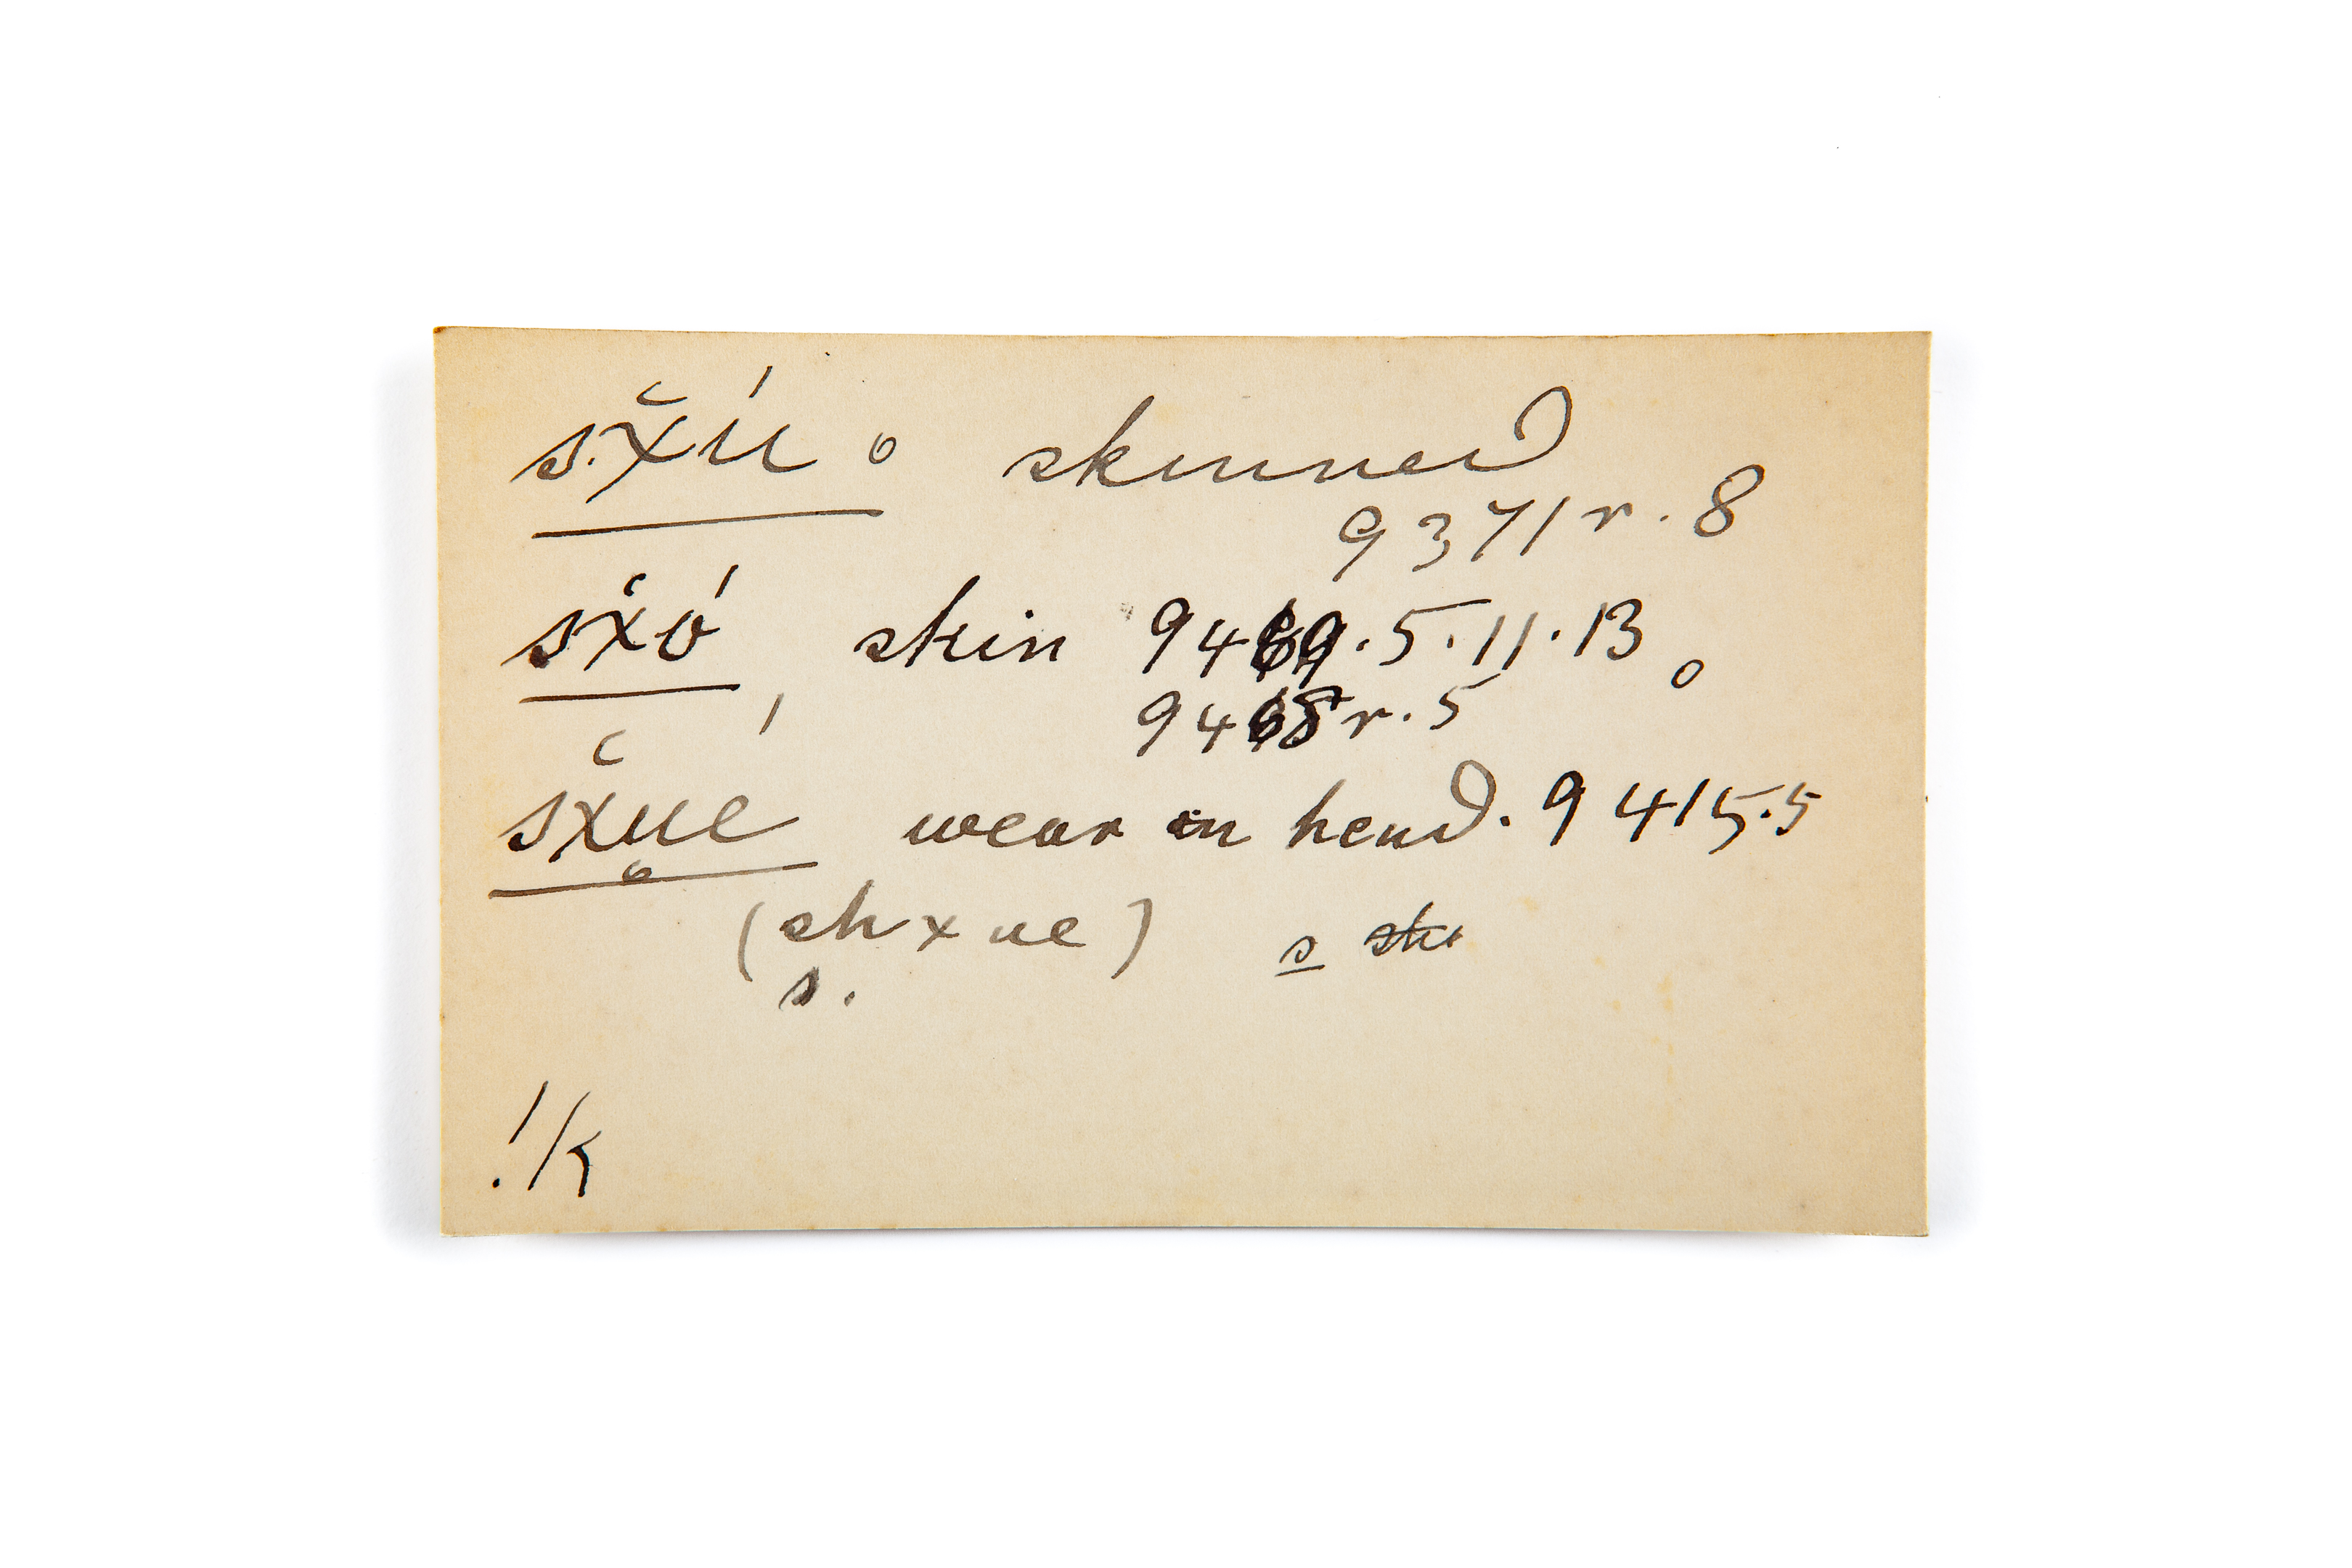 s.x̆ú o skinned
9371r.8
sx̆ó, skin 9469.5.11.13 o
9468r.5
sx̆u̥é wear on head. 9415.5
(shxue) s̲ ~~sk~~
s.
!/k